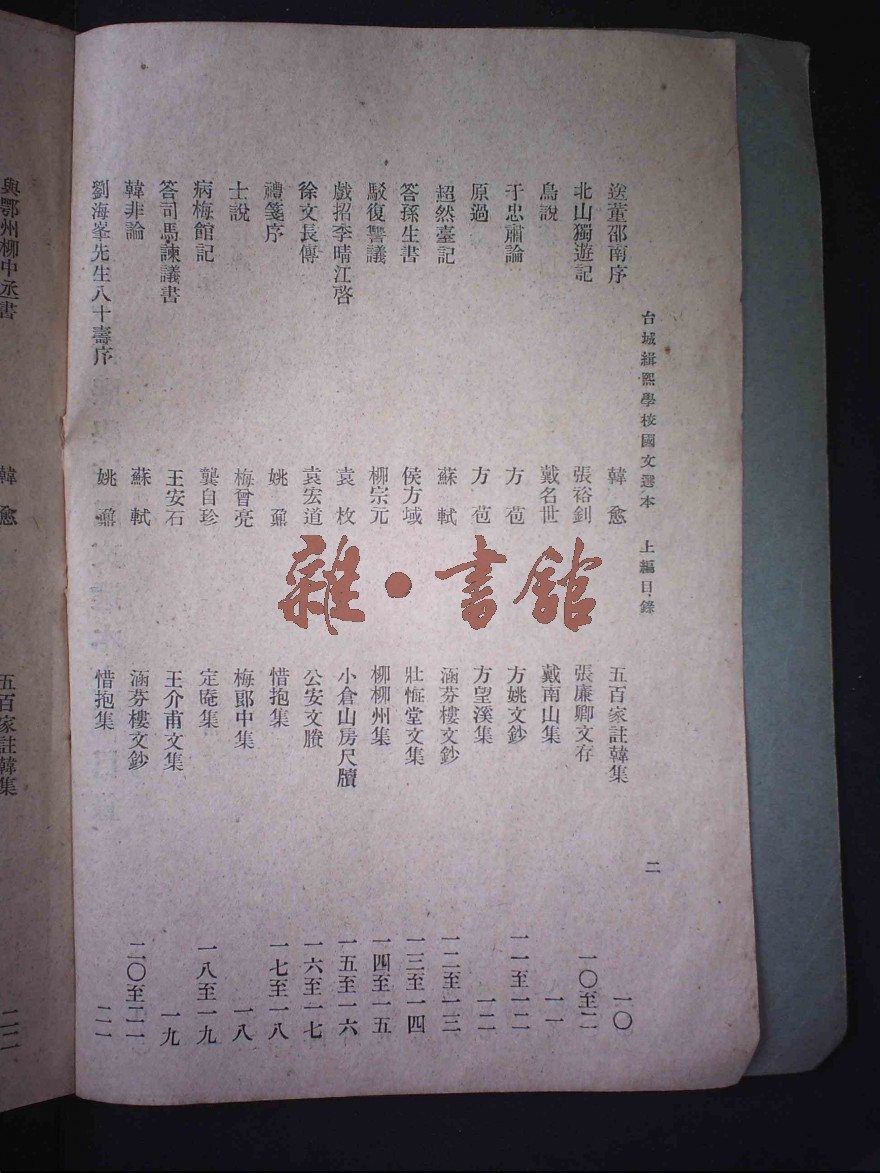 台城緝熙學校國文選本 上編目錄 二
送董邵南序 韓愈 五百家註韓集 一〇
北山獨遊記 張裕釗 張廉卿文存 一〇至一一
鳥說 戴名世 戴南山集 一一
于忠肅論 方苞 方姚文鈔 一一至一二
原過 方苞 方望溪集 一二
超然臺記 蘇軾 涵芬樓文鈔 一二至一三
答孫生書 侯方域 壯悔堂文集 一三至一四
駁復讐議 柳宗元 柳柳州集 一四至一五
戲招李晴江啓 袁枚 小倉山房尺牘 一五至一六
徐文長傳 袁宏道 公安文賸 一六至一七
禮箋序 姚鼐 惜抱集 一七至一八
士說 梅曾亮 梅郎中集 一八
病梅館記 龔自珍 定庵集 一八至一九
答司馬諫議書 王安石 王介甫文集 一九
韓非論 蘇軾 涵芬樓文鈔 二〇至二一
劉海峯先生八十壽序 姚鼐 惜抱集 二一
與鄂州柳中丞書 韓愈 五百家註韓集
雜·書館